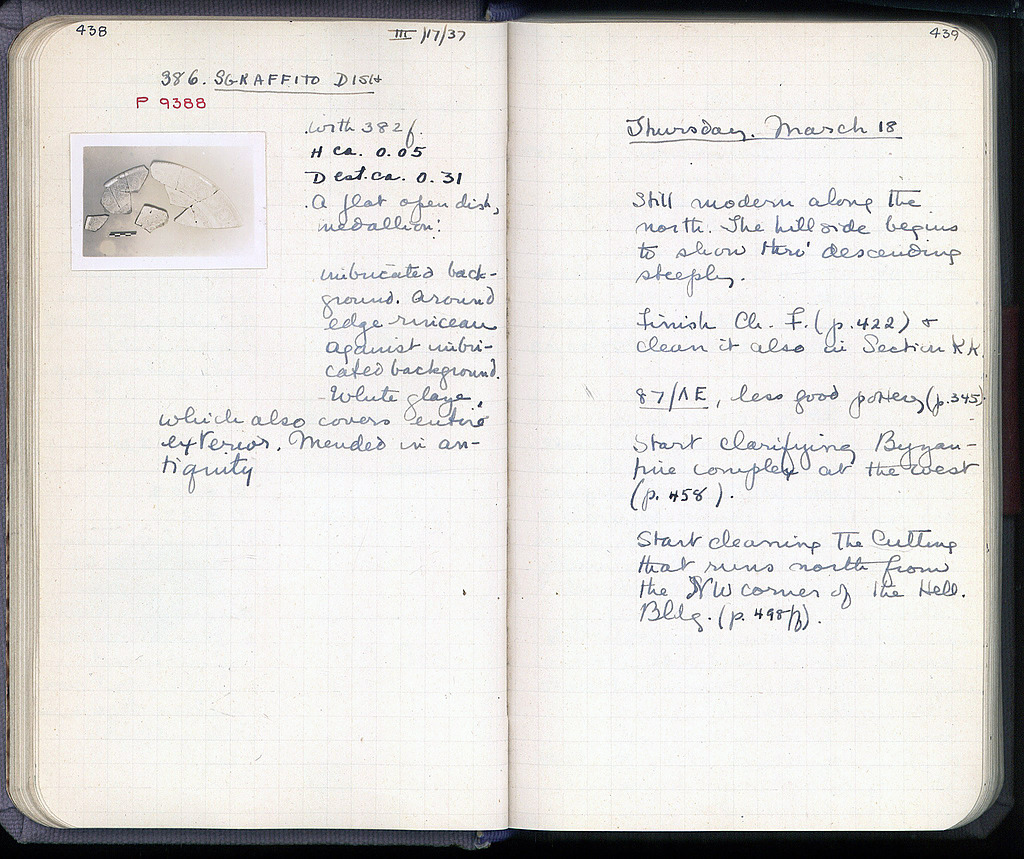 438
III /17/37
386. SGRAFFITO DISH
P 9388
.With 382f.
H ca. 0.05
D est. ca. 0.31
.A flat open dish,
medallion:
imbricated back-
ground. Around
edge rinceau
against imbri-
cated background.
White glaze,
which also covers entire
exterior. Mended in an-
tiquity
439
Thursday. March 18
Still modern along the
north. The hillside begins
to show thro' descending
steeply.
Finish Ch. F. (p. 422) &
clean it also in Section KK
87/ΛE, less good pottery (p. 345)
Start clarifying Byzan-
tine complex at the west
(p. 458).
Start cleaning the cutting
that runs north from
the NW corner of the Hell.
Bldg. (p. 498/f).